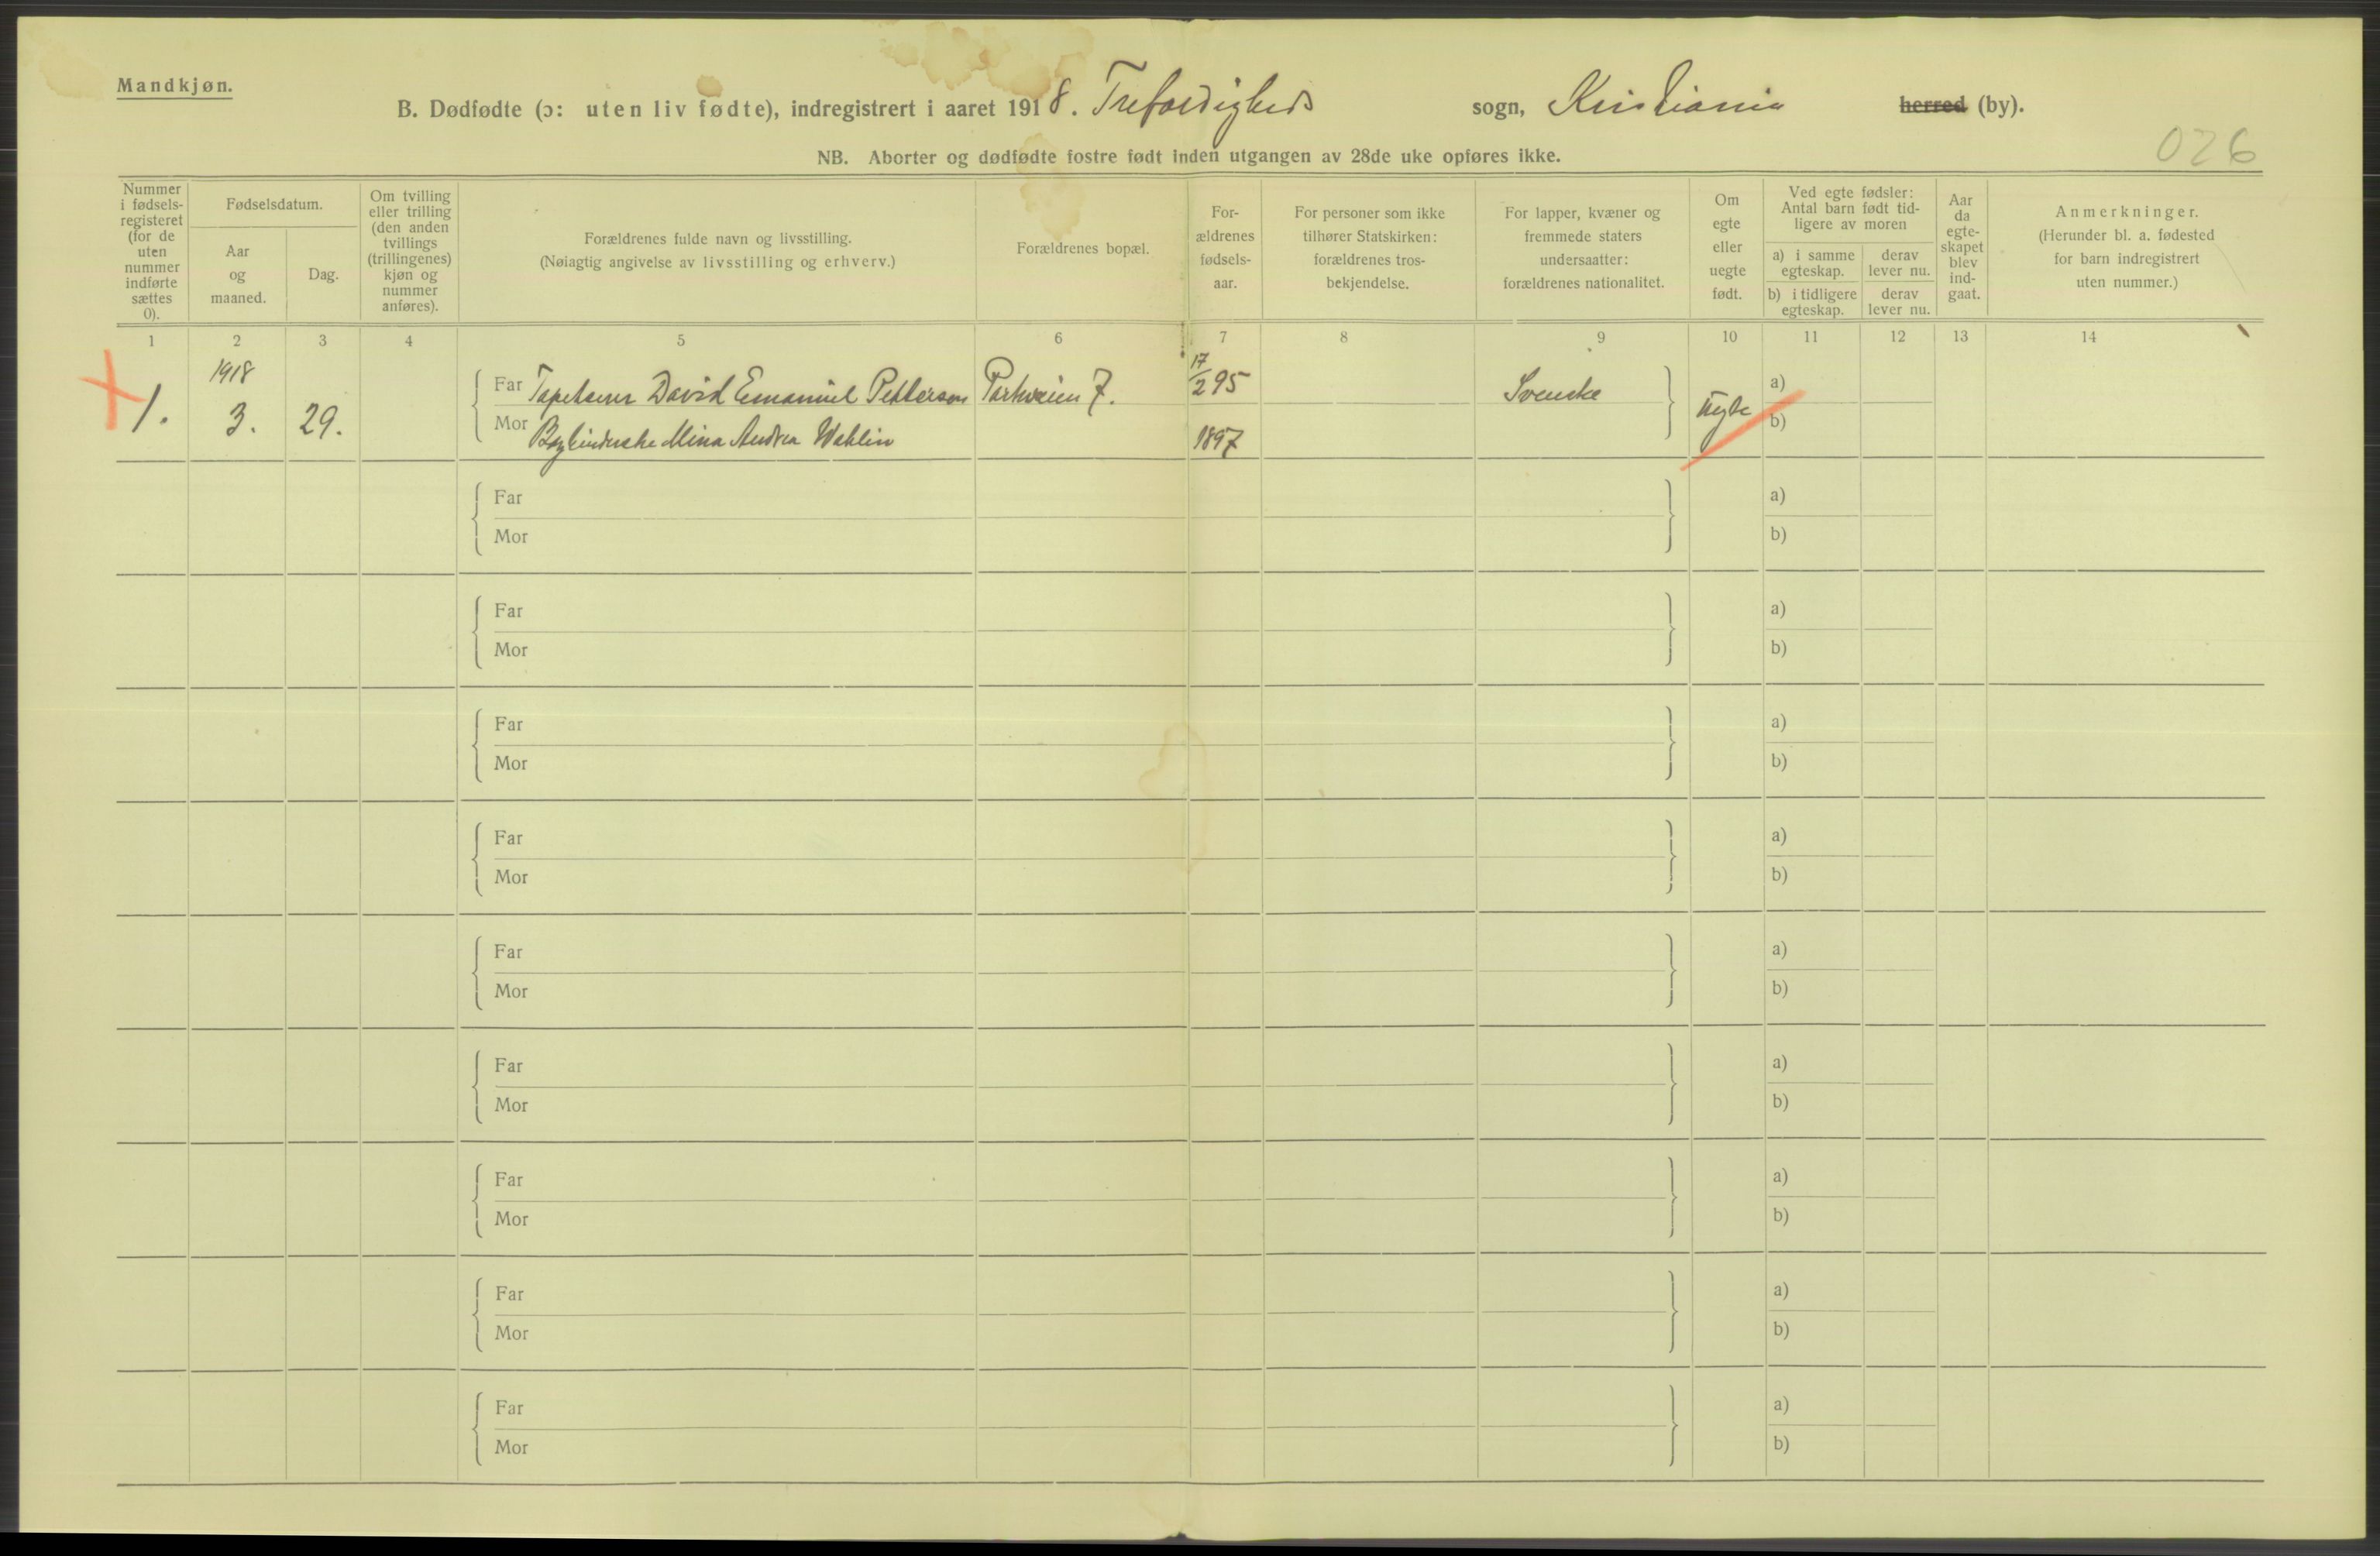 Mandkjøn.
B. Dødfødte (ɔ: uten liv fødte), indregistrert i aaret 1918. Trefoldigheds sogn, Kristiania herred (by).
026
NB. Aborter og dødfødte fostre født inden utgangen av 28de uke opføres ikke.
Nummer i fødsels-registeret (for de uten nummer indførte sættes 0).
Fødselsdatum.
Aar og maaned.
Dag.
Om tvilling eller trilling (den anden tvillings (trillingenes) kjøn og nummer anføres).
Forældrenes fulde navn og livsstilling.
(Nøiagtig angivelse av livsstilling og erhverv.)
Forældrenes bopæl.
For-ældrenes fødsels-aar.
For personer som ikke tilhører Statskirken: forældrenes tros-bekjendelse.
For lapper, kvæner og fremmede staters undersaatter: forældrenes nationalitet.
Om egte eller uegte født.
Ved egte fødsler: Antal barn født tid-ligere av moren
a) i samme egteskap.
derav lever nu.
b) i tidligere egteskap.
derav lever nu.
Aar da egte-skapet blev ind-gaat.
Anmerkninger.
(Herunder bl. a. fødested for barn indregistrert uten nummer.)
1 2 3 4 5 6 7 8 9 10 11 12 13 14
1918
1. 3. 29.
Far Tapetserer David Emanuel Petterson Parkveien 7. 17/2 95 Svenske uegte a)
Mor Mina Andrea Wahlin 1897 b)
Far a)
Mor b)
Far a)
Mor b)
Far a)
Mor b)
Far a)
Mor b)
Far a)
Mor b)
Far a)
Mor b)
Far a)
Mor b)
Far a)
Mor b)
Far a)
Mor b)